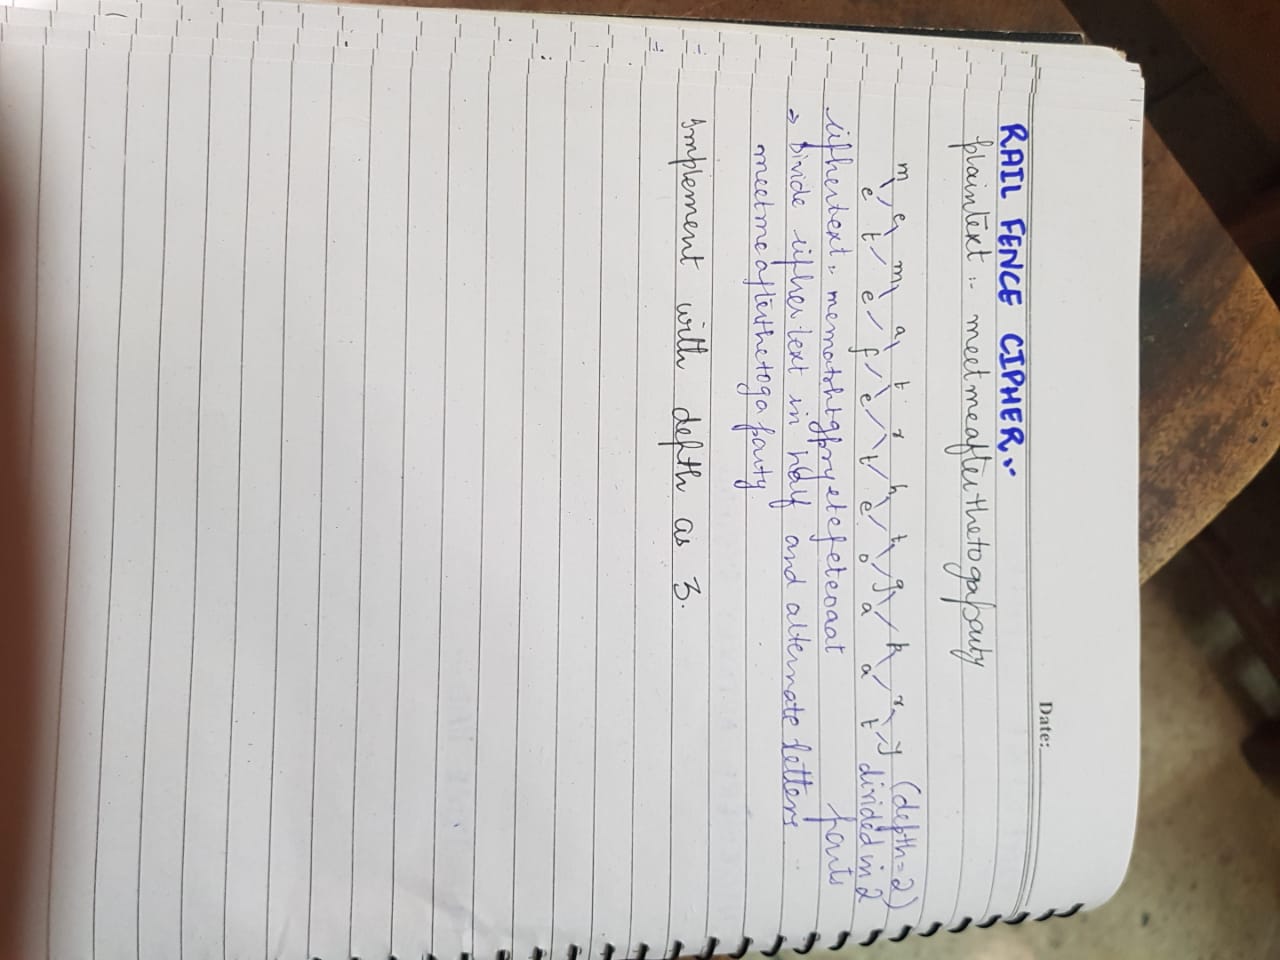 Date:
RAIL FENCE CIPHER:-
plaintext :- meetmeafterthetogaparty
m e m a t r h t g p r y (depth=2)
e t e f e t e o a a t divided in 2 parts
ciphertext :- mematrhtgpryetefeteoaat
⇒ Divide cipher text in half and alternate letters
meetmeafterthetogaparty
Implement with depth as 3.